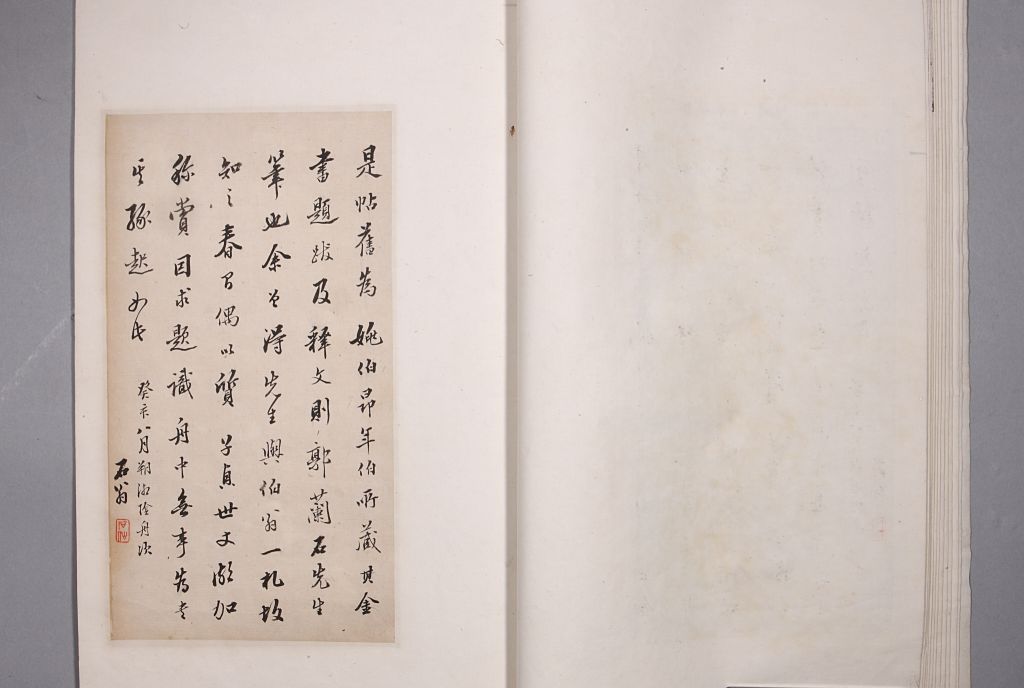 是帖舊為姚伯昂年伯所藏其金
書題跋及釋文則郭蘭石先生
筆也余曾得先生與伯翁一札故
知之春間偶以質子貞世丈頗加
稱賞因求題識舟中無事為書
其緣起如此
癸亥八月朔湖陰舟次
石翁